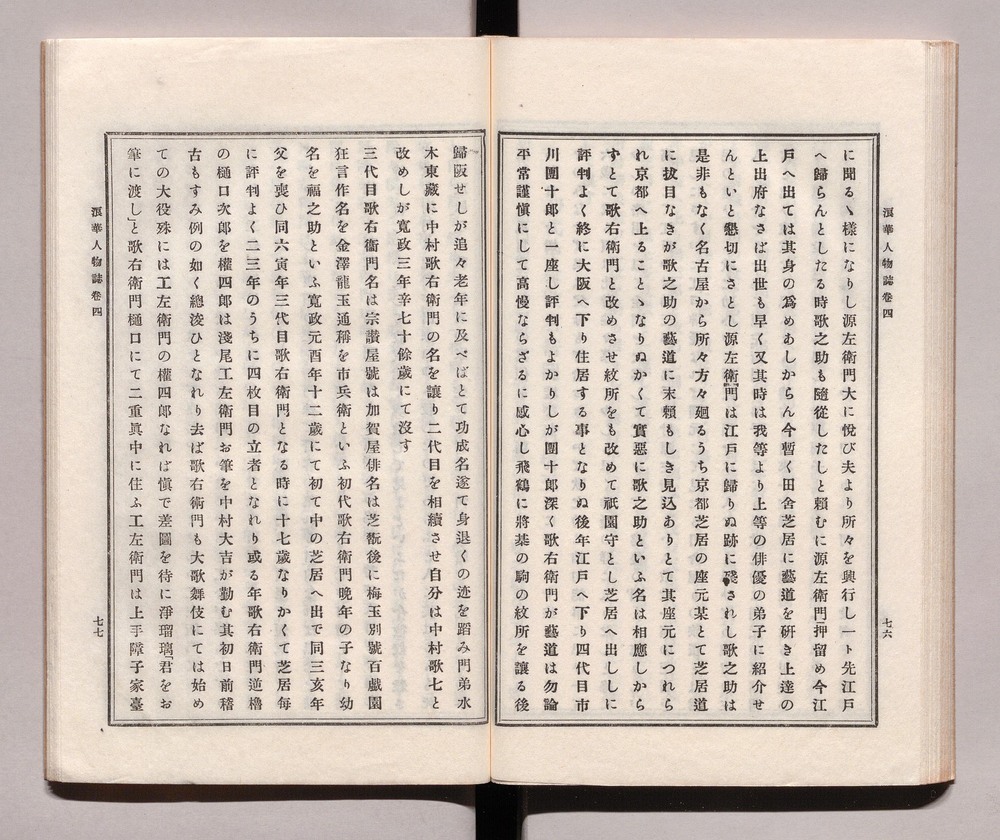 浪華人物誌卷四
七六
に聞るゝ樣になりし源左衛門大に悅び夫より所々を興行し一ト先江戶
へ歸らんとしたる時歌之助も隨從したしと賴むに源左衛門押留め今江
戶へ出ては其身の爲めあしからん今暫く田舍芝居に藝道を硏き上達の
上出府なさば出世も早く又其時は我等より上等の俳優の弟子に紹介せ
んといと懇切にさとし源左衛門は江戶に歸りぬ跡に殘されし歌之助は
是非もなく名古屋から所々方々廻るうち京都芝居の座元某とて芝居道
に拔目なきが歌之助の藝道に末賴もしき見込ありとて其座元につれら
れ京都へ上ることゝなりぬかくて實惡に歌之助といふ名は相應しから
ずとて歌右衛門と改めさせ紋所をも改めて祇園守とし芝居へ出しに
評判よく終に大阪へ下り住居する事となりぬ後年江戶へ下り四代目市
川團十郎と一座し評判もよかりしが團十郎深く歌右衛門が藝道は勿論
平常謹愼にして高慢ならざるに感心し飛鶴に將棊の駒の紋所を讓る後
歸阪せしが追々老年に及べばとて功成名遂て身退くの迹を蹈み門弟水
木東藏に中村歌右衛門の名を讓り二代目を相續させ自分は中村歌七と
改めしが寬政三年辛七十餘歲にて沒す
三代目歌右衞門名は宗讚屋號は加賀屋俳名は芝翫後に梅玉別號百戲園
狂言作名を金澤龍玉通稱を市兵衛といふ初代歌右衛門晚年の子なり幼
名を福之助といふ寬政元酉年十二歲にて初て中の芝居へ出で同三亥年
父を喪ひ同六寅年三代目歌右衛門となる時に十七歲なりかくて芝居每
に評判よく二三年のうちに四枚目の立者となれり或る年歌右衛門逆櫓
の樋口次郎を權四郎は淺尾工左衛門お筆を中村大吉が勤む其初日前稽
古もすみ例の如く總浚ひとなれり去ば歌右衛門も大歌舞伎にては始め
ての大役殊には工左衛門の權四郎なれば愼で差圖を待に淨瑠璃君をお
筆に渡し」と歌右衛門樋口にて二重眞中に住ふ工左衛門は上手障子家臺
浪華人物誌卷四
七七